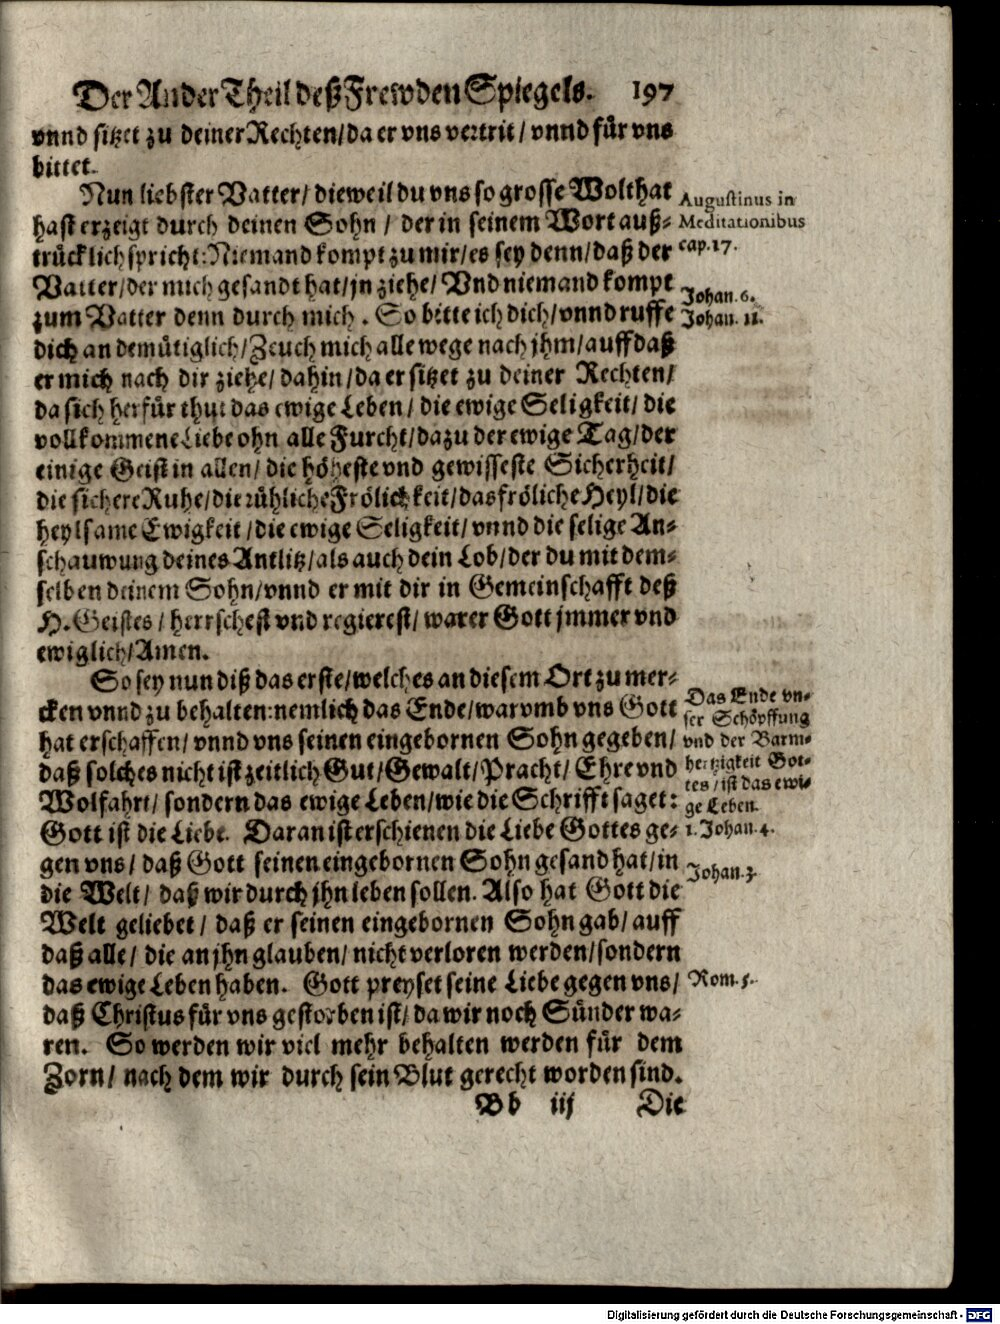 Der Ander Theil deß Frewden Spiegels. 197
vnnd sitzet zu deiner Rechten/ da er vns vertrit/ vnnd für vns
bittet.
Nun liebster Vatter/ dieweil du vns so grosse Wolthat
hast erzeigt durch deinen Sohn/ der in seinem Wort auß-
trücklich spricht: Niemand kompt zu mir/ es sey denn/ daß der
Vatter/ der mich gesandt hat/ jn ziehe/ Vnd niemand kompt
zum Vatter denn durch mich. So bitte ich dich/ vnnd ruffe
dich an demütiglich/ Zeuch mich allewege nach jhm/ auff daß
er mich nach dir ziehe/ dahin/ da er sitzet zu deiner Rechten/
da sich herfür thut das ewige Leben/ die ewige Seligkeit/ die
vollkommene Liebe ohn alle Furcht/ dazu der ewige Tag/ der
einige Geist in allen/ die höheste vnd gewisseste Sicherheit/
die sichere Ruhe/ die rühliche Frölichkeit/ das fröliche Heyl/ die
heylsame Ewigkeit/ die ewige Seligkeit/ vnnd die selige An-
schauwung deines Antlitz/ als auch dein Lob/ der du mit dem-
selben deinem Sohn/ vnnd er mit dir in Gemeinschafft deß
H. Geistes/ herrschest vnd regierest/ warer Gott jmmer vnd
ewiglich/ Amen.
So sey nun diß das erste/ welches an diesem Ort zu mer-
cken vnnd zu behalten: nemlich das Ende/ warvmb vns Gott
hat erschaffen/ vnnd vns seinen eingebornen Sohn gegeben/
daß solches nicht ist zeitlich Gut/ Gewalt/ Pracht/ Ehre vnd
Wolfahrt/ sondern das ewige Leben/ wie die Schrifft saget:
Gott ist die Liebe. Daran ist erschienen die Liebe Gottes ge-
gen vns/ daß Gott seinen eingebornen Sohn gesand hat/ in
die Welt/ daß wir durch jhn leben sollen. Also hat Gott die
Welt geliebet/ daß er seinen eingebornen Sohn gab/ auff
daß alle/ die an jhn glauben/ nicht verloren werden/ sondern
das ewige Leben haben. Gott preyset seine Liebe gegen vns/
daß Christus für vns gestorben ist/ da wir noch Sünder wa-
ren. So werden wir viel mehr behalten werden für dem
Zorn/ nach dem wir durch sein Blut gerecht worden sind.
Bb iij Die
Augustinus in
Meditationibus
cap. 17.
Johan. 6.
Johan. 11.
Das Ende vn-
ser Schöpffung
vnd der Barm-
hertzigkeit Got-
tes/ ist das ewi-
ge Leben.
1. Johan. 4.
Johan. 3.
Rom. 5.
Digitalisierung gefördert durch die Deutsche Forschungsgemeinschaft - DFG